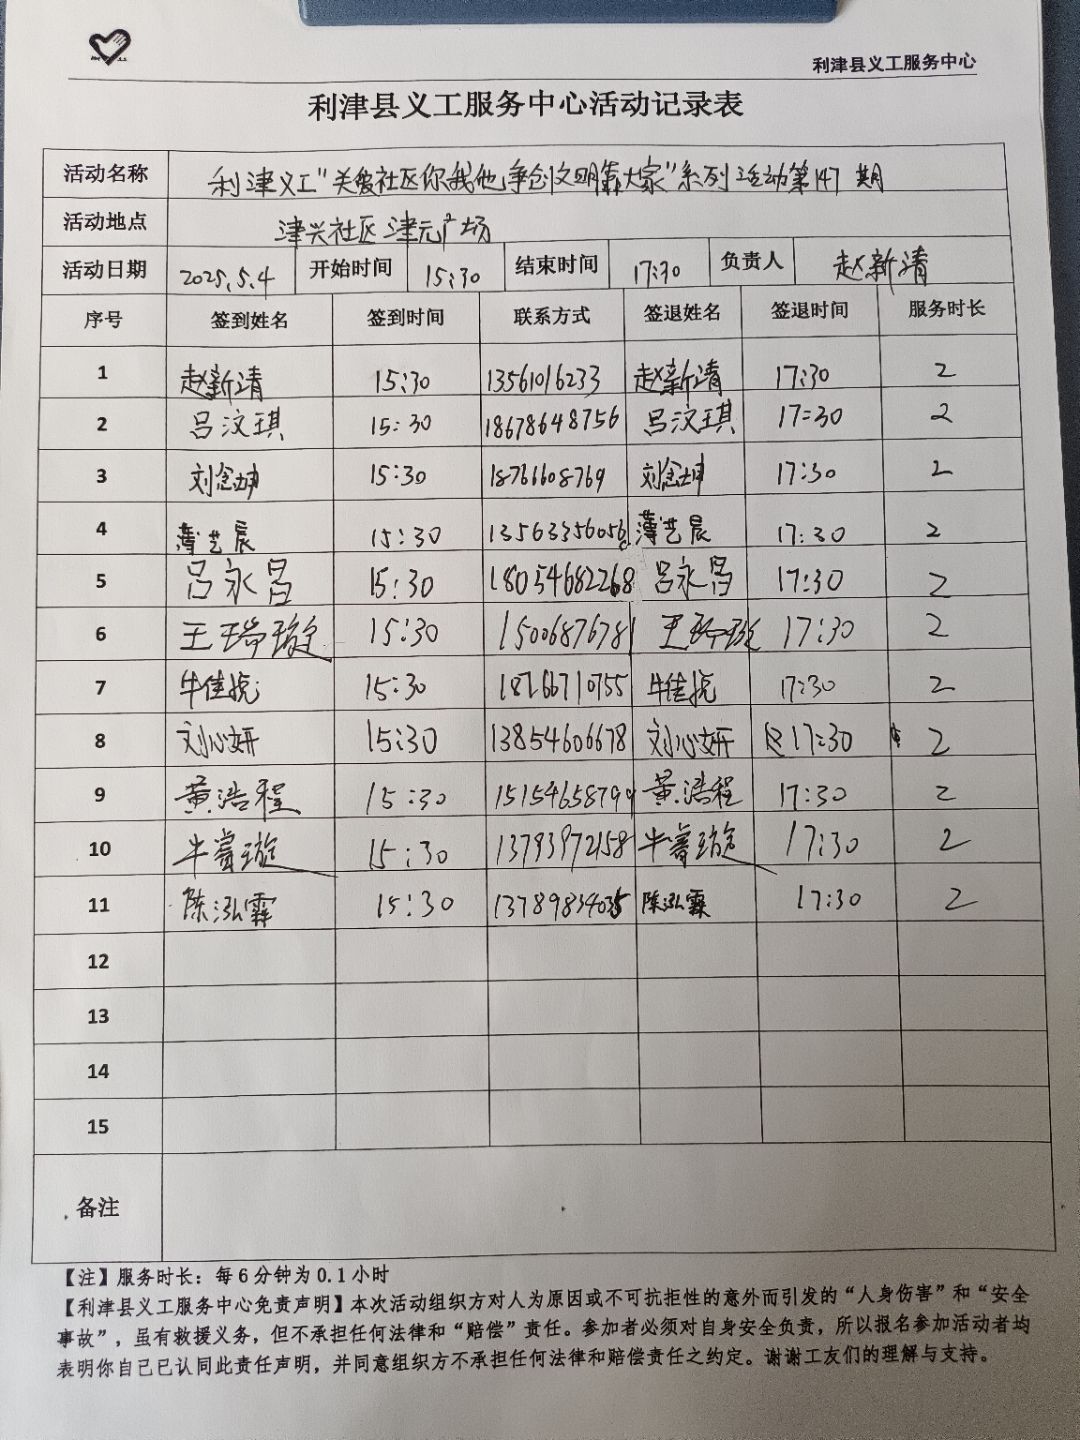 利津县义工服务中心
利津县义工服务中心活动记录表
活动名称 利津义工"关爱社区你我他争创文明靠大家"系列活动第147期
活动地点 津兴社区津元广场
活动日期 2025.5.4 开始时间 15:30 结束时间 17:30 负责人 赵新清
序号 签到姓名 签到时间 联系方式 签退姓名 签退时间 服务时长
1 赵新清 15:30 13561016233 赵新清 17:30 2
2 吕汶琪 15:30 18678648756 吕汶琪 17:30 2
3 刘念坤 15:30 18766608769 刘念坤 17:30 2
4 薄艺辰 15:30 13563356056 薄艺辰 17:30 2
5 吕永昌 15:30 18054682268 吕永昌 17:30 2
6 王瑞璇 15:30 15006876781 王瑞璇 17:30 2
7 牛佳彪 15:30 18766710755 牛佳彪 17:30 2
8 刘心妍 15:30 13854606678 刘心妍 17:30 2
9 黄浩程 15:30 15154658799 黄浩程 17:30 2
10 牛睿璇 15:30 13793972158 牛睿璇 17:30 2
11 陈泓霖 15:30 13789834035 陈泓霖 17:30 2
12
13
14
15
备注
【注】服务时长：每6分钟为0.1小时
【利津县义工服务中心免责声明】本次活动组织方对人为原因或不可抗拒性的意外而引发的“人身伤害”和“安全
事故”，虽有救援义务，但不承担任何法律和“赔偿”责任。参加者必须对自身安全负责，所以报名参加活动者均
表明你自己已认同此责任声明，并同意组织方不承担任何法律和赔偿责任之约定。谢谢工友们的理解与支持。